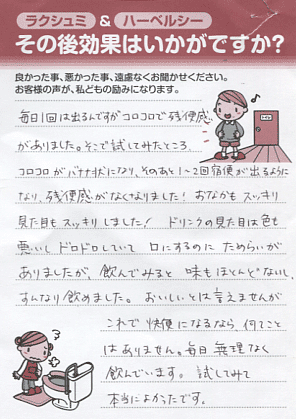 ラクシュミ & ハーベルシー
その後効果はいかがですか?
良かった事、悪かった事、遠慮なくお聞かせください。
お客様の声が、私どもの励みになります。
毎日1回は出るんですがコロコロで残便感
がありました。そこで試してみたところ、
コロコロがバナナ状になり、そのあと1~2回宿便が出るように
なり、残便感がなくなりました!おなかもスッキリ
見た目もスッキリしました!ドリンクの見た目は色も
悪いしドロドロしていて口にするのにためらいが
ありましたが、飲んでみると味もほとんどないし、
すんなり飲めました。おいしいとは言えませんが
これで快便になるなら何てこと
はありません。毎日無理なく
飲んでいます。試してみて
本当によかったです。